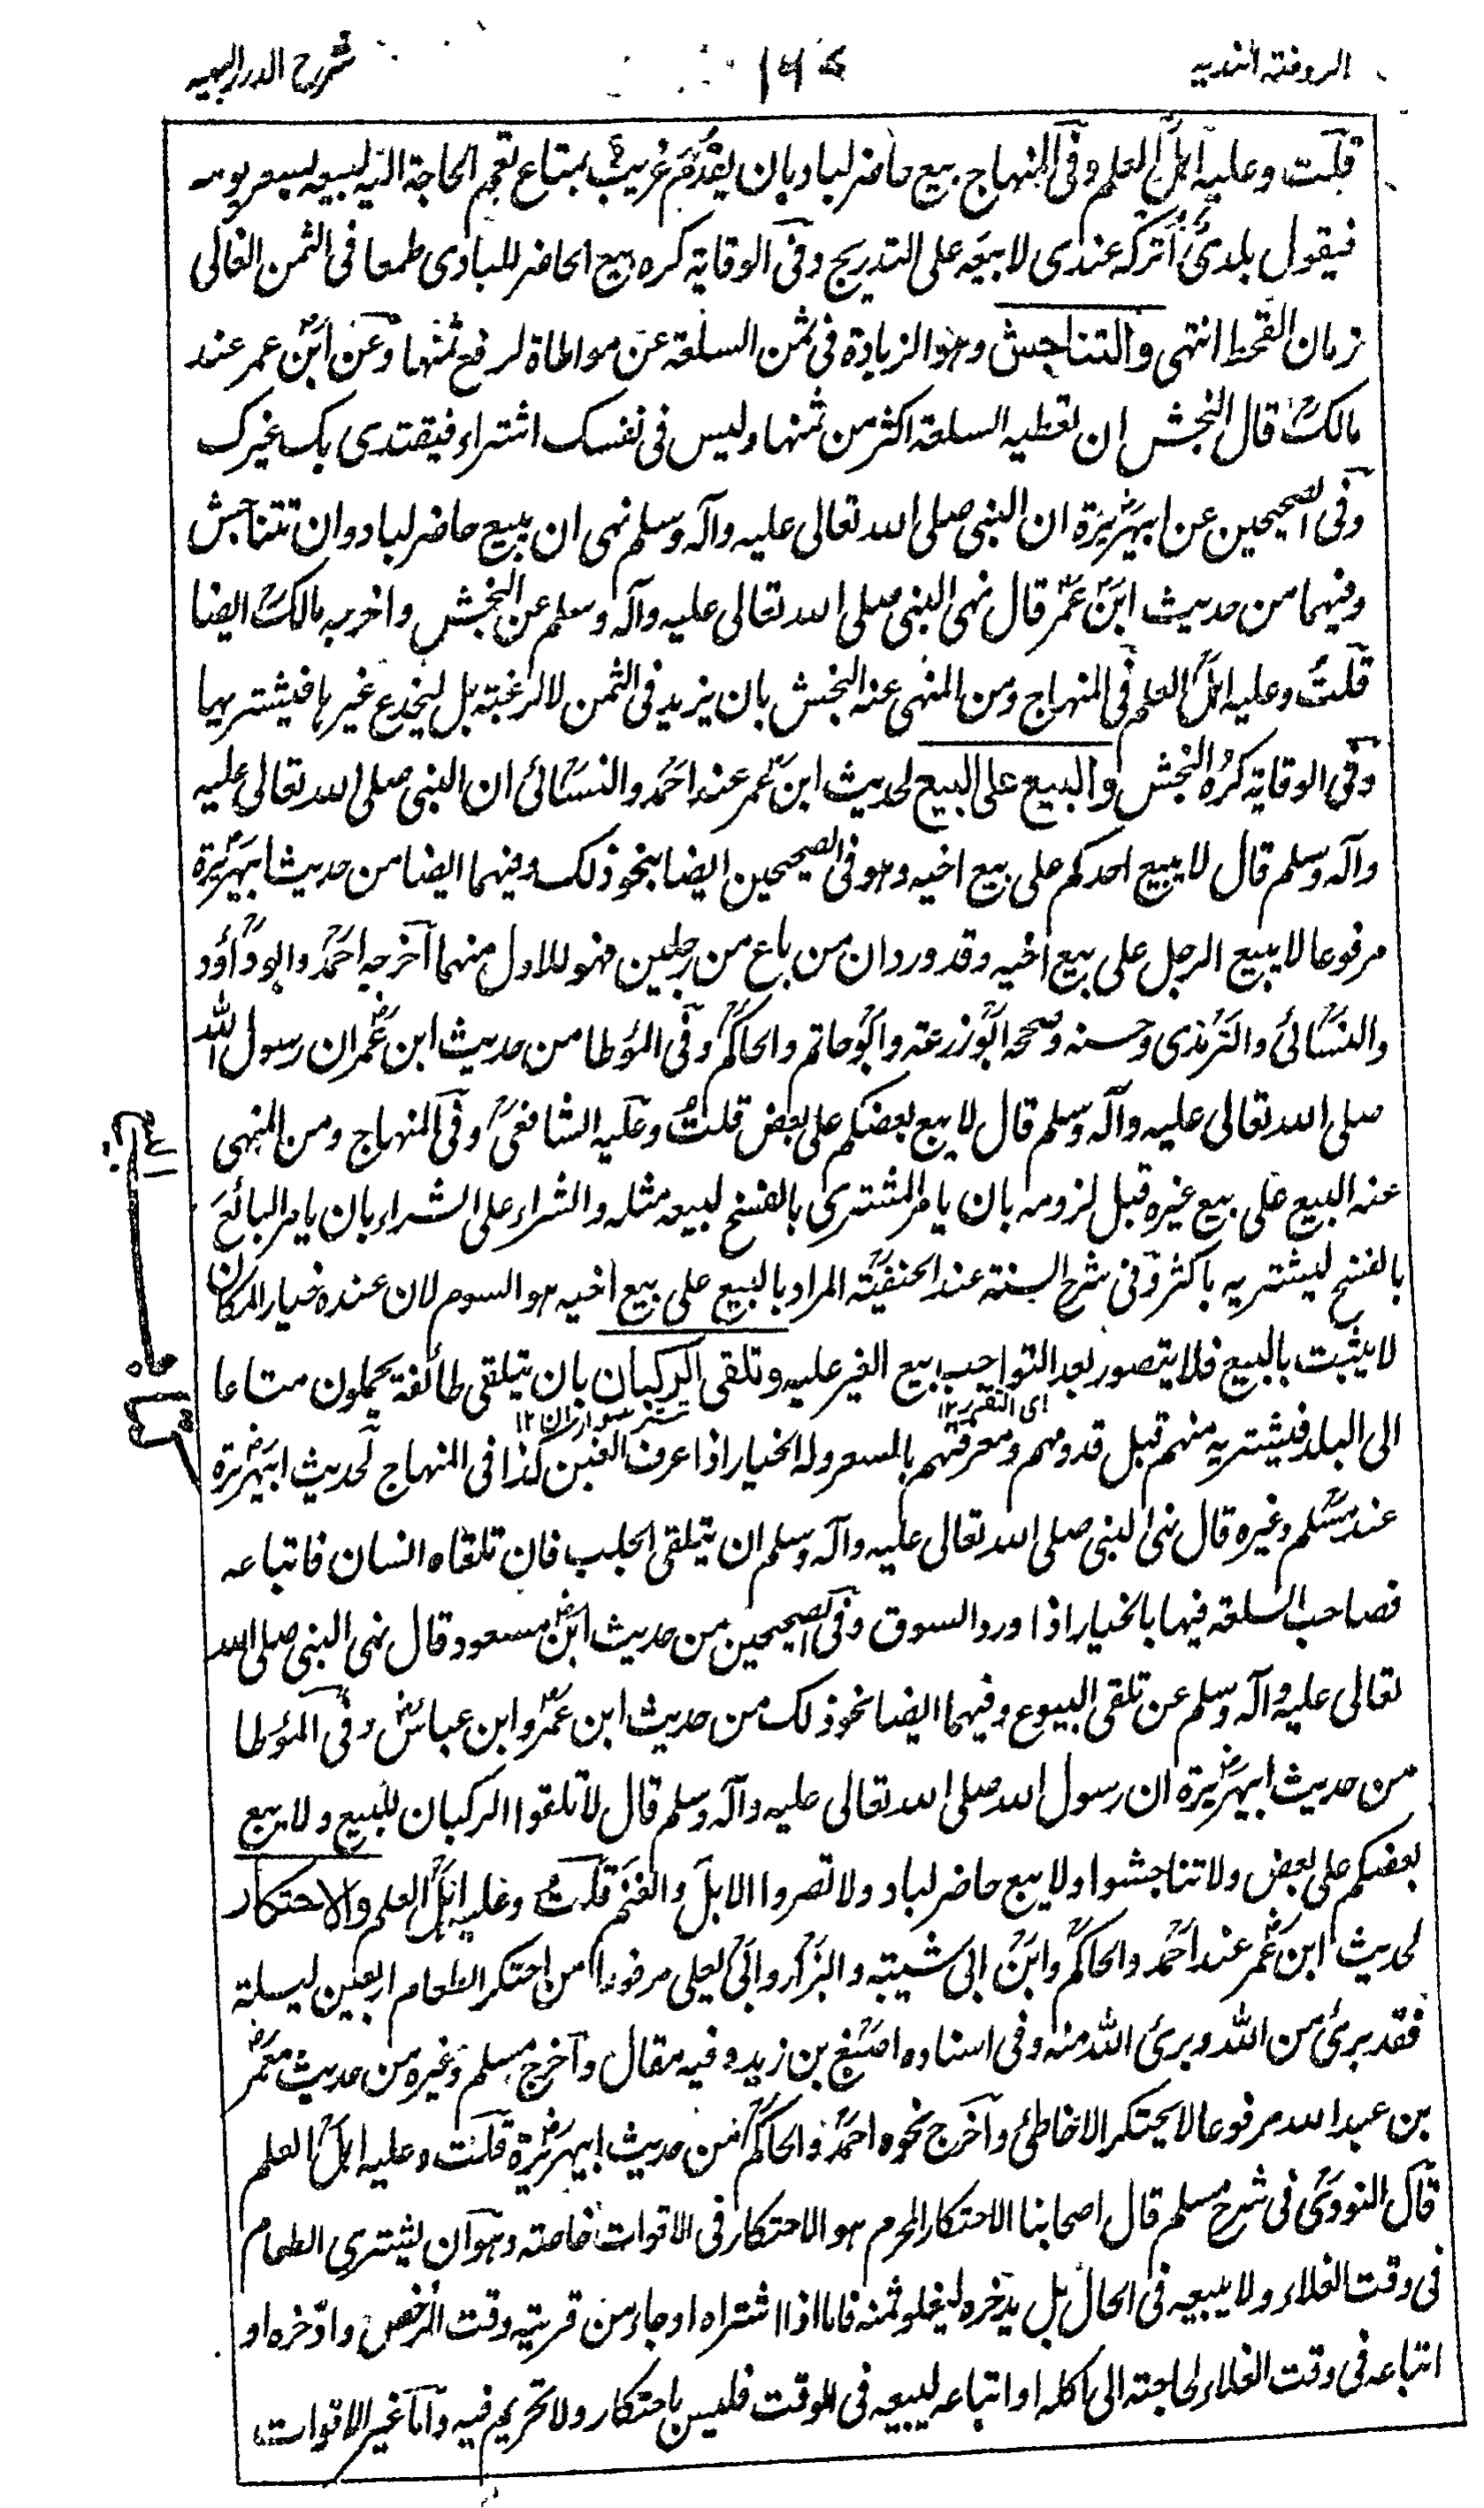 الروضة الندية
شرح الدرر البهيه
قلت وعليه اهل العلم وفى المنهاج بيع حاضر لباد بان يقدم غريب بمتاع تعم الحاجة اليه ليبيعه بسعر يومه
فيقول بلدى اتركه عندى لابيعه على التدريج وفى الوقاية كره بيع الحاضر للبادى طمعا فى الثمن الغالى
زمان القحط انتهى والتناجش وهو الزيادة فى ثمن السلعة عن مواطاة لرفع ثمنها وعن ابن عمر عند
مالك قال النجش ان تعطيه السلعة اكثر من ثمنها وليس فى نفسك اشتراء فيقتدى بك غيرك
وفى الصحيحين عن ابيهريرة ان النبى صلى الله تعالى عليه وآله وسلم نهى ان يبيع حاضر لباد وان تتناجش
وفيهما من حديث ابن عمر قال نهى النبى صلى الله تعالى عليه وآله وسلم عن النجش واخرجه مالك ايضا
قلت وعليه اهل العلم فى المنهاج ومن المنهى عنه النجش بان يزيد فى الثمن لا لرغبة بل ليخدع غيرها فيشتريها
وفى الوقاية كره النجش والبيع على البيع لحديث ابن عمر عند احمد والنسائى ان النبى صلى الله تعالى عليه
وآله وسلم قال لا يبيع احدكم على بيع اخيه وهو فى الصحيحين ايضا بنحو ذلك وفيهما ايضا من حديث ابيهريرة
مرفوعا لا يبيع الرجل على بيع اخيه وقد ورد ان من باع من رجلين فهو للاول منهما اخرجه احمد وابو داؤد
والنسائى والترمذى وحسنه وصححه ابو زرعة وابو حاتم والحاكم وفى المؤطا من حديث ابن عمر ان رسول الله
صلى الله تعالى عليه وآله وسلم قال لا يبع بعضكم على بعض قلت وعليه الشافعى وفى المنهاج ومن المنهى
عنه البيع على بيع غيره قبل لزومه بان يامر المشترى بالفسخ ليبيعه مثله والشراء على الشراء بان يامر البائع
بالفسخ ليشتريه باكثر وفى شرح السنة عند الحنفية المراد بالبيع على بيع اخيه هو السوم لان عنده خيار المكان
لا يثبت بالبيع فلا يتصور بعد التواجب بيع الغير عليه وتلقى الركبان بان يتلقى طائفة يحملون متاعا
اى التقرر ١٢
الى البلد فيشتريه منهم قبل قدومهم ومعرفتهم بالسعر وله الخيار اذا عرف الغبن كذا فى المنهاج لحديث ابيهريرة
عند مسلم وغيره قال نهى النبى صلى الله تعالى عليه وآله وسلم ان يتلقى الجلب فان تلقاه انسان فابتاعه
فصاحب السلعة فيها بالخيار اذا ورد السوق وفى الصحيحين من حديث ابن مسعود قال نهى النبى صلى الله
تعالى عليه وآله وسلم عن تلقى البيوع وفيهما ايضا نحو ذلك من حديث ابن عمر وابن عباس وفى المؤطا
من حديث ابيهريرة ان رسول الله صلى الله تعالى عليه وآله وسلم قال لا تلقوا الركبان للبيع ولا يبع
بعضكم على بعض ولا تناجشوا ولا يبع حاضر لباد ولا تصروا الابل والغنم قلت وعليه اهل العلم والاحتكار
لحديث ابن عمر عند احمد والحاكم وابن ابى شيبة والبزار وابى يعلى مرفوعا من احتكر الطعام اربعين ليلة
فقد برئ من الله وبرئ الله منه وفى اسناده اصبغ بن زيد وفيه مقال وآخرج مسلم وغيره من حديث معمر
بن عبد الله مرفوعا لا يحتكر الا خاطئ وآخرج نحوه احمد والحاكم من حديث ابيهريرة قلت وعليه اهل العلم
قال النووى فى شرح مسلم قال اصحابنا الاحتكار المحرم هو الاحتكار فى الاقوات خاصة وهو ان يشترى الطعام
فى وقت الغلاء ولا يبيعه فى الحال بل يدخره ليغلو ثمنه فاما اذا اشتراه او جاء من قريته وقت الرخص وادخره او
ابتاعه فى وقت الغلاء لحاجته الى ياكله او ابتاعه ليبيعه فى الوقت فليس باحتكار ولا تحريم فيه واما غير الاقوات